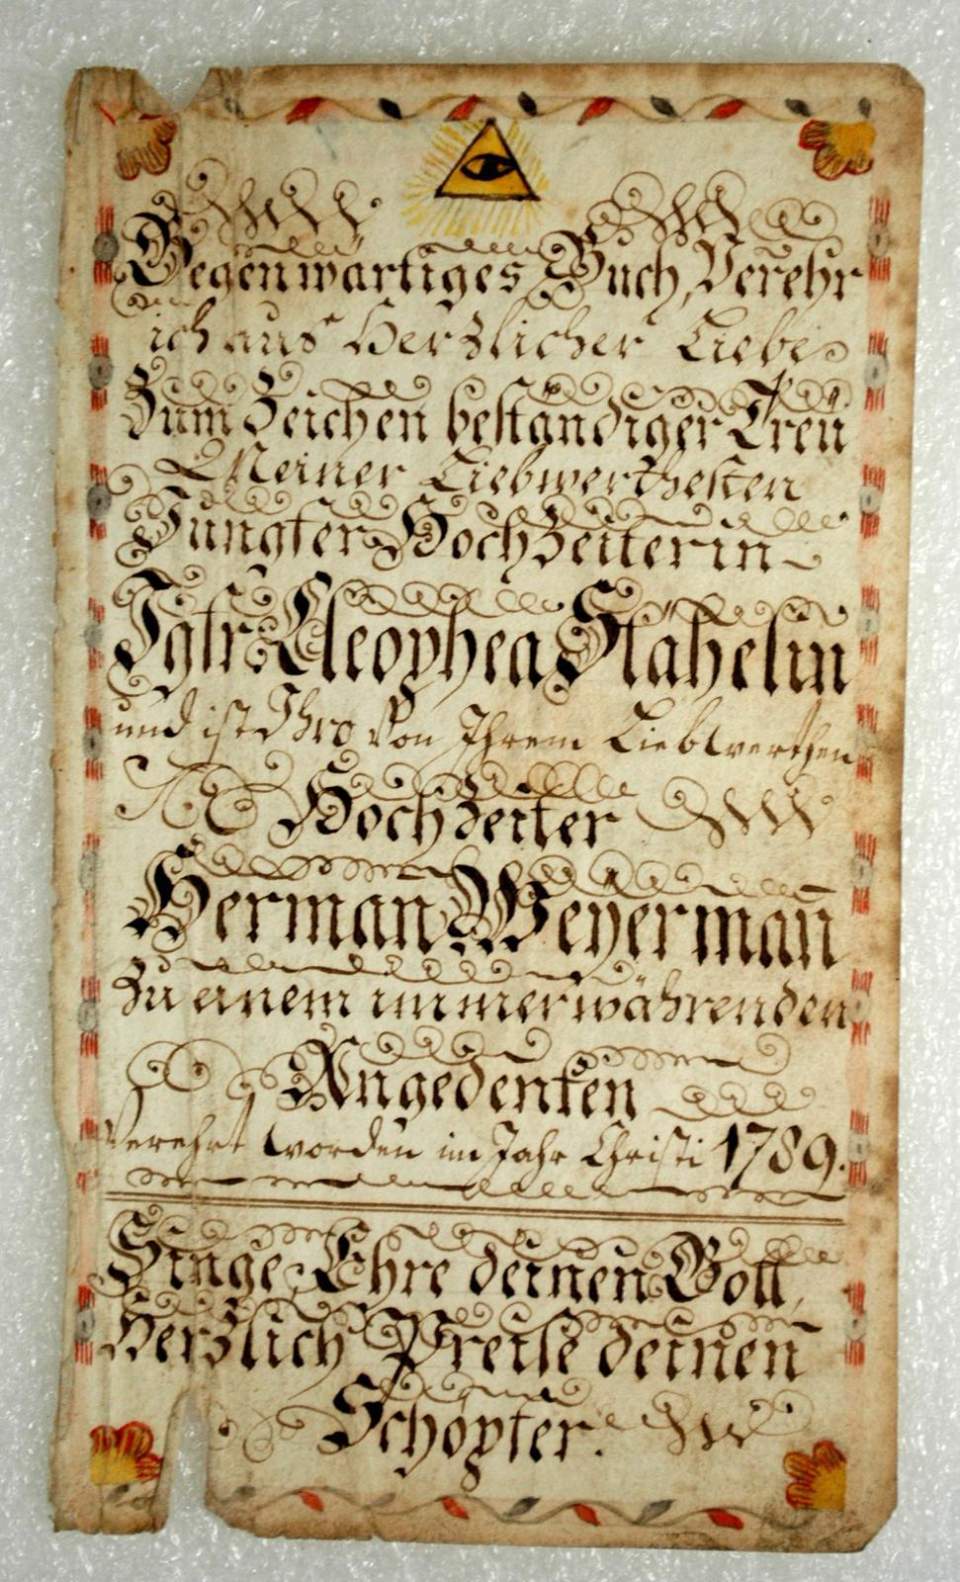 Gegenwärtiges Buch, Verehr
ich aus Herzlicher Liebe
Zum Zeichen beständiger Treü
Meiner Liebwerthesten
Jungfer Hochzeiterin
Jgfr Cleophea Stähelin
und ist Ihro von Ihrem Liebwerthen
Hochzeiter
Herman Weyerman̄
Zu einem immerwährenden
Angedenken
Verehrt worden im Jahr Christi 1789.
Singe, Ehre deinen Gott,
Herzlich Preise deinen
Schöpfer.